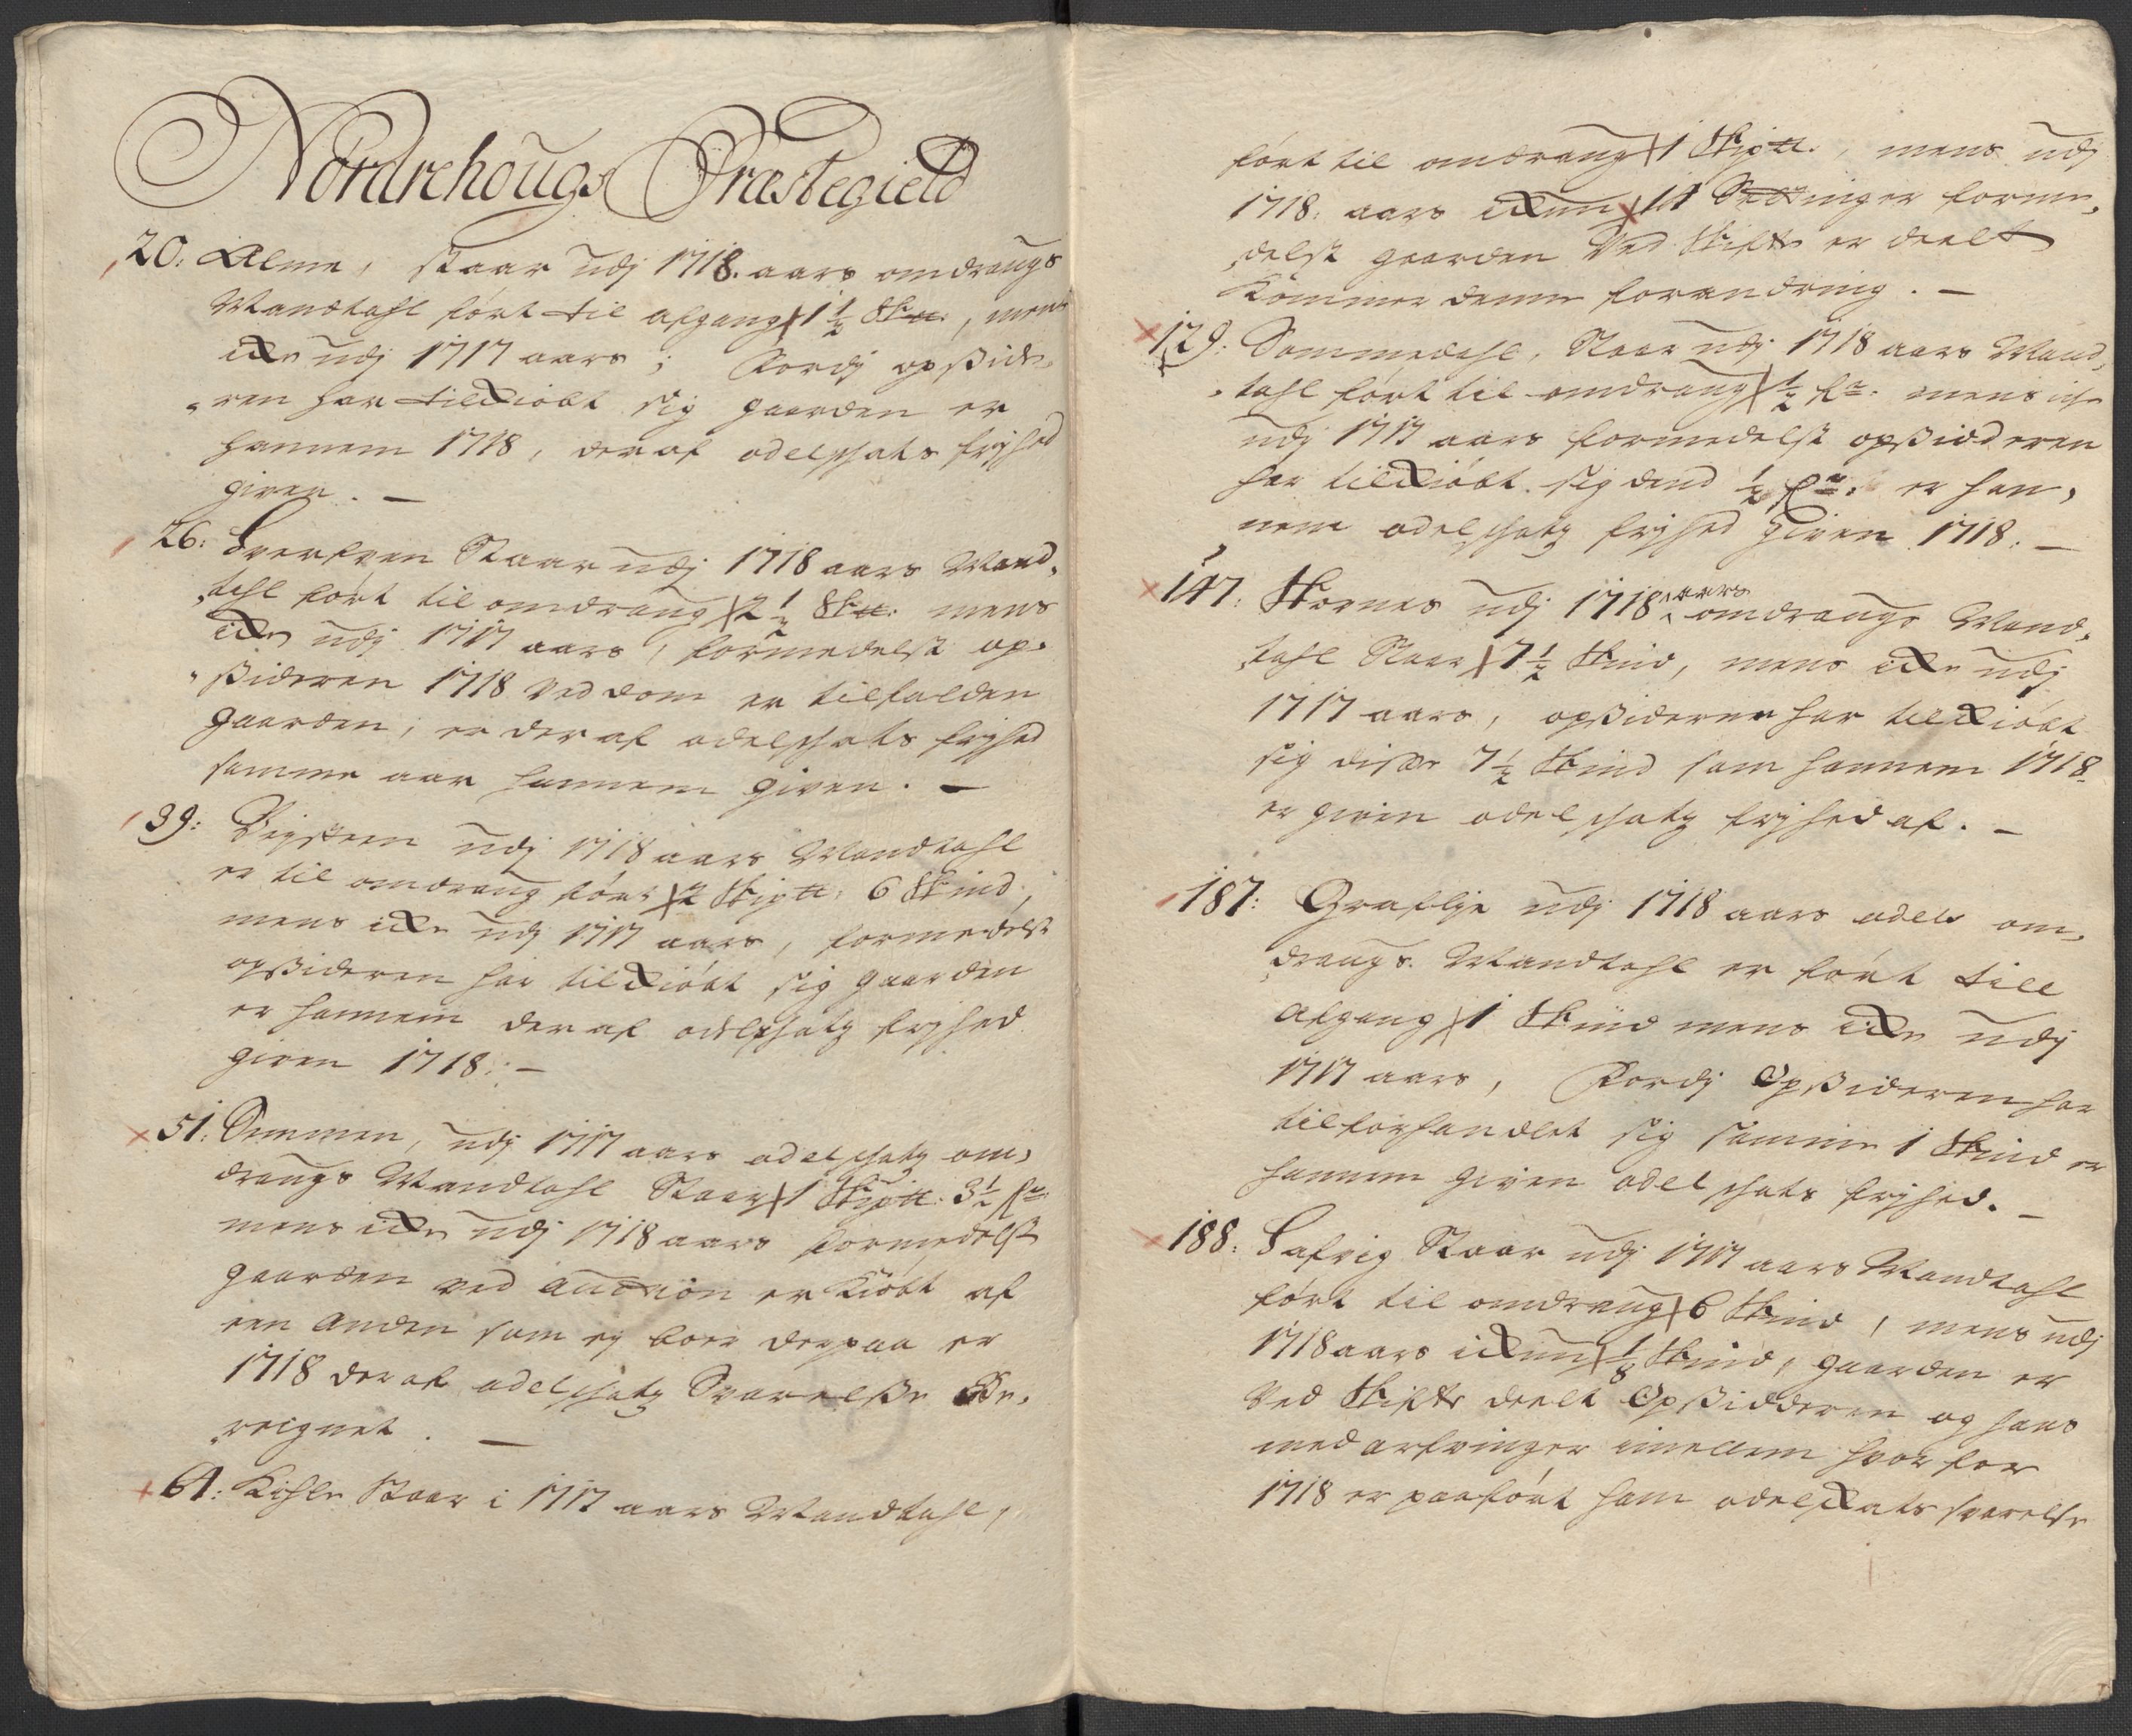 Nordrehougs Præstegield
20: Alme, staar udj 1718. aars omdraugs
Mandtahl ført til afgang 1 1/2 Sk℔:, mens
icke udj 1717 aars; Fordj opside-
ren har tilkiøbt sig gaarden er
hannem 1718, deraf odelschats frjhed
given. —
26: Svertven Staar udj 1718 aars Mand-
tahl ført til omdraug 2 1/2 Sk℔: mens
icke udj 1717 aars, formedelst op-
sideren 1718 ved dom er tilfalden
gaarden, er deraf odelschats frjhed
samme aar hannem given. —
39: Vegstein udj 1718 aars Mandtahl
er til omdraug ført 2 Skip℔: 6 Skind,
mens icke udj 1717 aars, formedelst
opsideren har tilkiøbt sig gaarden
er hannem deraf odelschatz frjhed
given 1718: —
51: Semmen, udj 1717 aars odelschatz om-
draugs Mandtahl Staar 1 Skip℔: 3 1/2 f
mens icke udj 1718 aars formedelst
gaarden ved auction er kiøbt af
een anden som ej boer derpaa er
1718 deraf odelschatz Svarelse be-
reignet. —
61: Kihle Staar i 1717 aars Mandtahl,
ført til omdraug 1 Skip℔., mens udj
1718: aars ickun 11 Settinger forme-
delst gaarden ved Skifte er deelt
kommer denne forandring. —
129: Sommedahl, Staar udj 1718 aars Mand-
tahl ført til omdraug 1/2 f: mens icke
udj 1717 aars formedelst opsidderen
har tilkiøbt sig dend 1/2 f: er han-
nem odelschatz frjhed given 1718: —
147: Hornes udj 1718 aars omdraugs Mand-
tahl Staar 7 1/2 Skind, mens icke udj
1717 aars, opsideren har tilkiøbt
sig disse 7 1/2 Skind som hannem 1718
er given odelschatz frjhed af. —
187: Graflje udj 1718 aars odels om-
draugs Mandtahl er ført till
afgang 1 Skind mens icke udj
1717 aars, Fordj Opsideren har
tilforhandlet sig samme 1 Skind er
hannem given odelschats frjhed. —
188: Safvig Staar udj 1717 aars Mandtahl
ført til omdraug 6 Skind, mens udj
1718 aars ickun 1/8 Skind, gaarden er
ved Skifte deelt Opsidderen og hans
medarfvinger imellem hvorfor
1718 er paaført ham odelskats svarelse